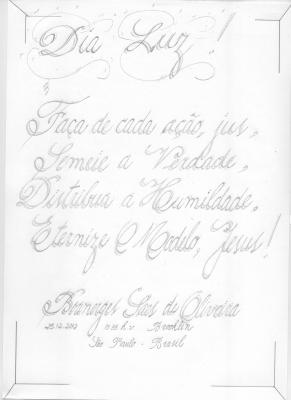 Dia Luz!
"
Faça de cada ação, jus,,
Semeie a Verdade,,
Distribua a Humildade,,
Eternize O Modelo, Jesus!
de Oliveira
Brooklin
São Paulo - Brasil